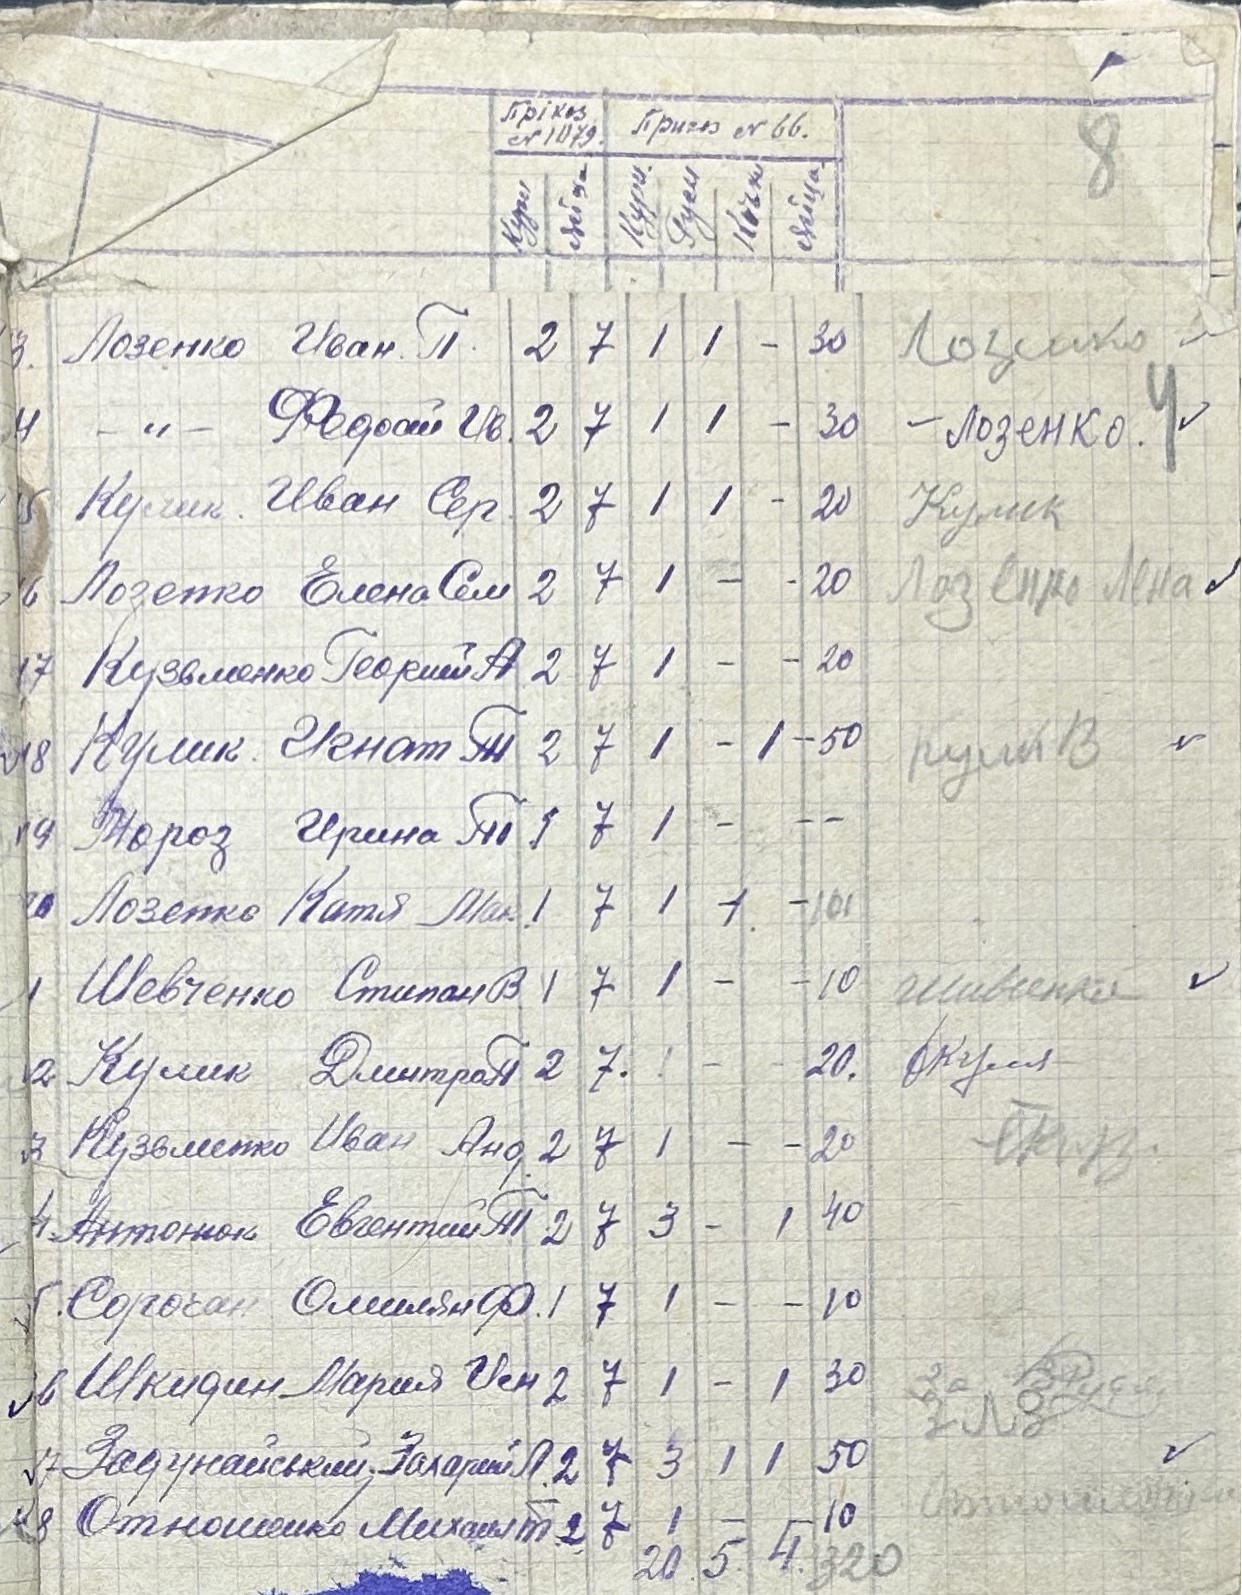 8
Прiказ Приказ № 66.
№ 1079.
Кури Яйца Кури Гуси Качки Яйца
13. Лозенко Иван П. 2 7 1 1 - 30 Лозенко
14 -"- Федосий Ив. 2 7 1 1 - 30 - Лозенко. Ч
15 Кулик Иван Сер. 2 7 1 1 - 20 Кулик
16 Лозенко Елена Сем 2 7 1 - - 20 Лозенко Лена
17 Кузьменко Георгий А 2 7 1 - - 20
18 Кулик Игнат М 2 7 1 - 1 - 50 Кулик В
19 Мороз Ирина М 1 7 1 - - -
20 Лозенко Катя Мак. 1 7 1 1 -
1 Шевченко Степан В 1 7 1 - - 10 Шивченко
2 Кулик Дмитро П 2 7. 1 - - 20.
3 Кузьменко Иван Анд. 2 7 1 - - 20
4. Антонюк Евгений М 2 7 3 - 1 40
5. Сорочан Омилян Ф. 1 7 1 - - 10
6 Шкидин Мария Иен 2 7 1 - 1 30 за
7 Задунайський Захарий Л. 2 7 3 1 1 50
8 Отношенко Михаил П 2 7 1 - - 10
20 5 4. 320